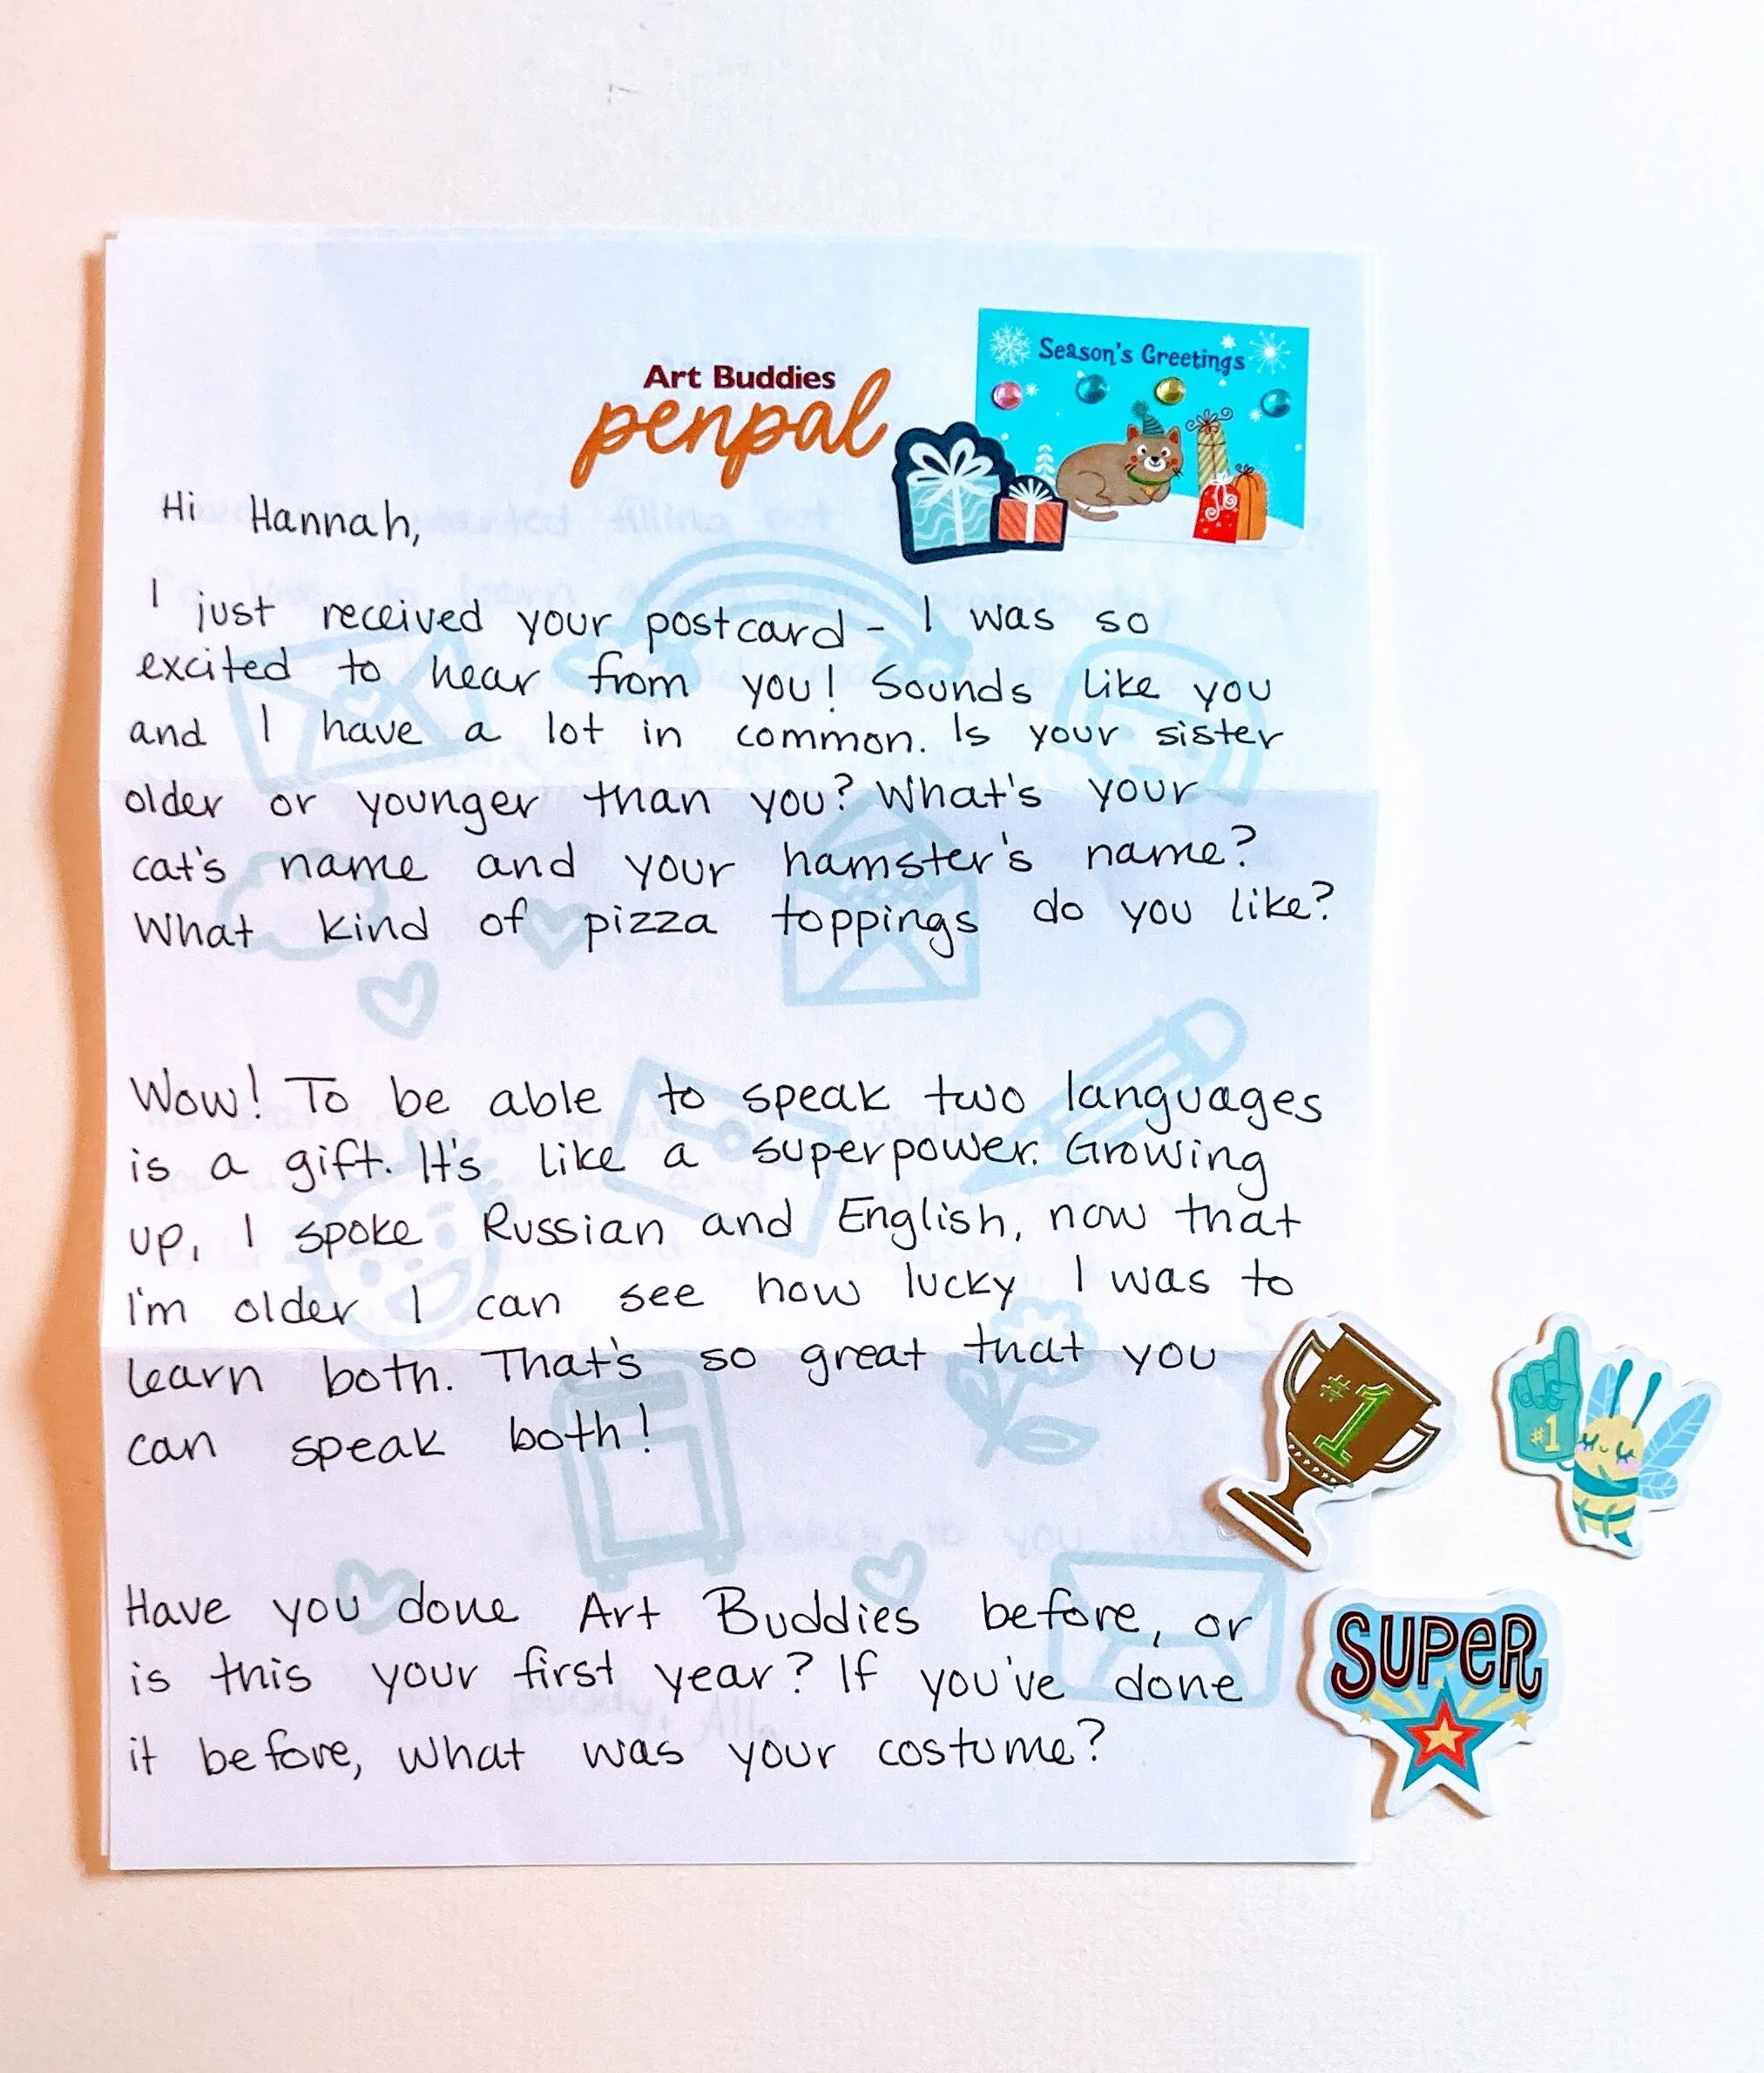 Season's Greetings
Art Buddies
penpal
Hi Hannah,
I just received your postcard - I was so
excited to hear from you! Sounds like you
and I have a lot in common. Is your sister
older or younger than you? What's your
cat's name and your hamster's name?
What kind of pizza toppings do you like?
Wow! To be able to speak two languages
is a gift. It's like a superpower. Growing
up, I spoke Russian and English, now that
I'm older I can see how lucky I was to
learn both. That's so great that you
can speak both!
#1
#1
Have you done Art Buddies before, or
is this your first year? If you've done
it before, what was your costume?
SUPER